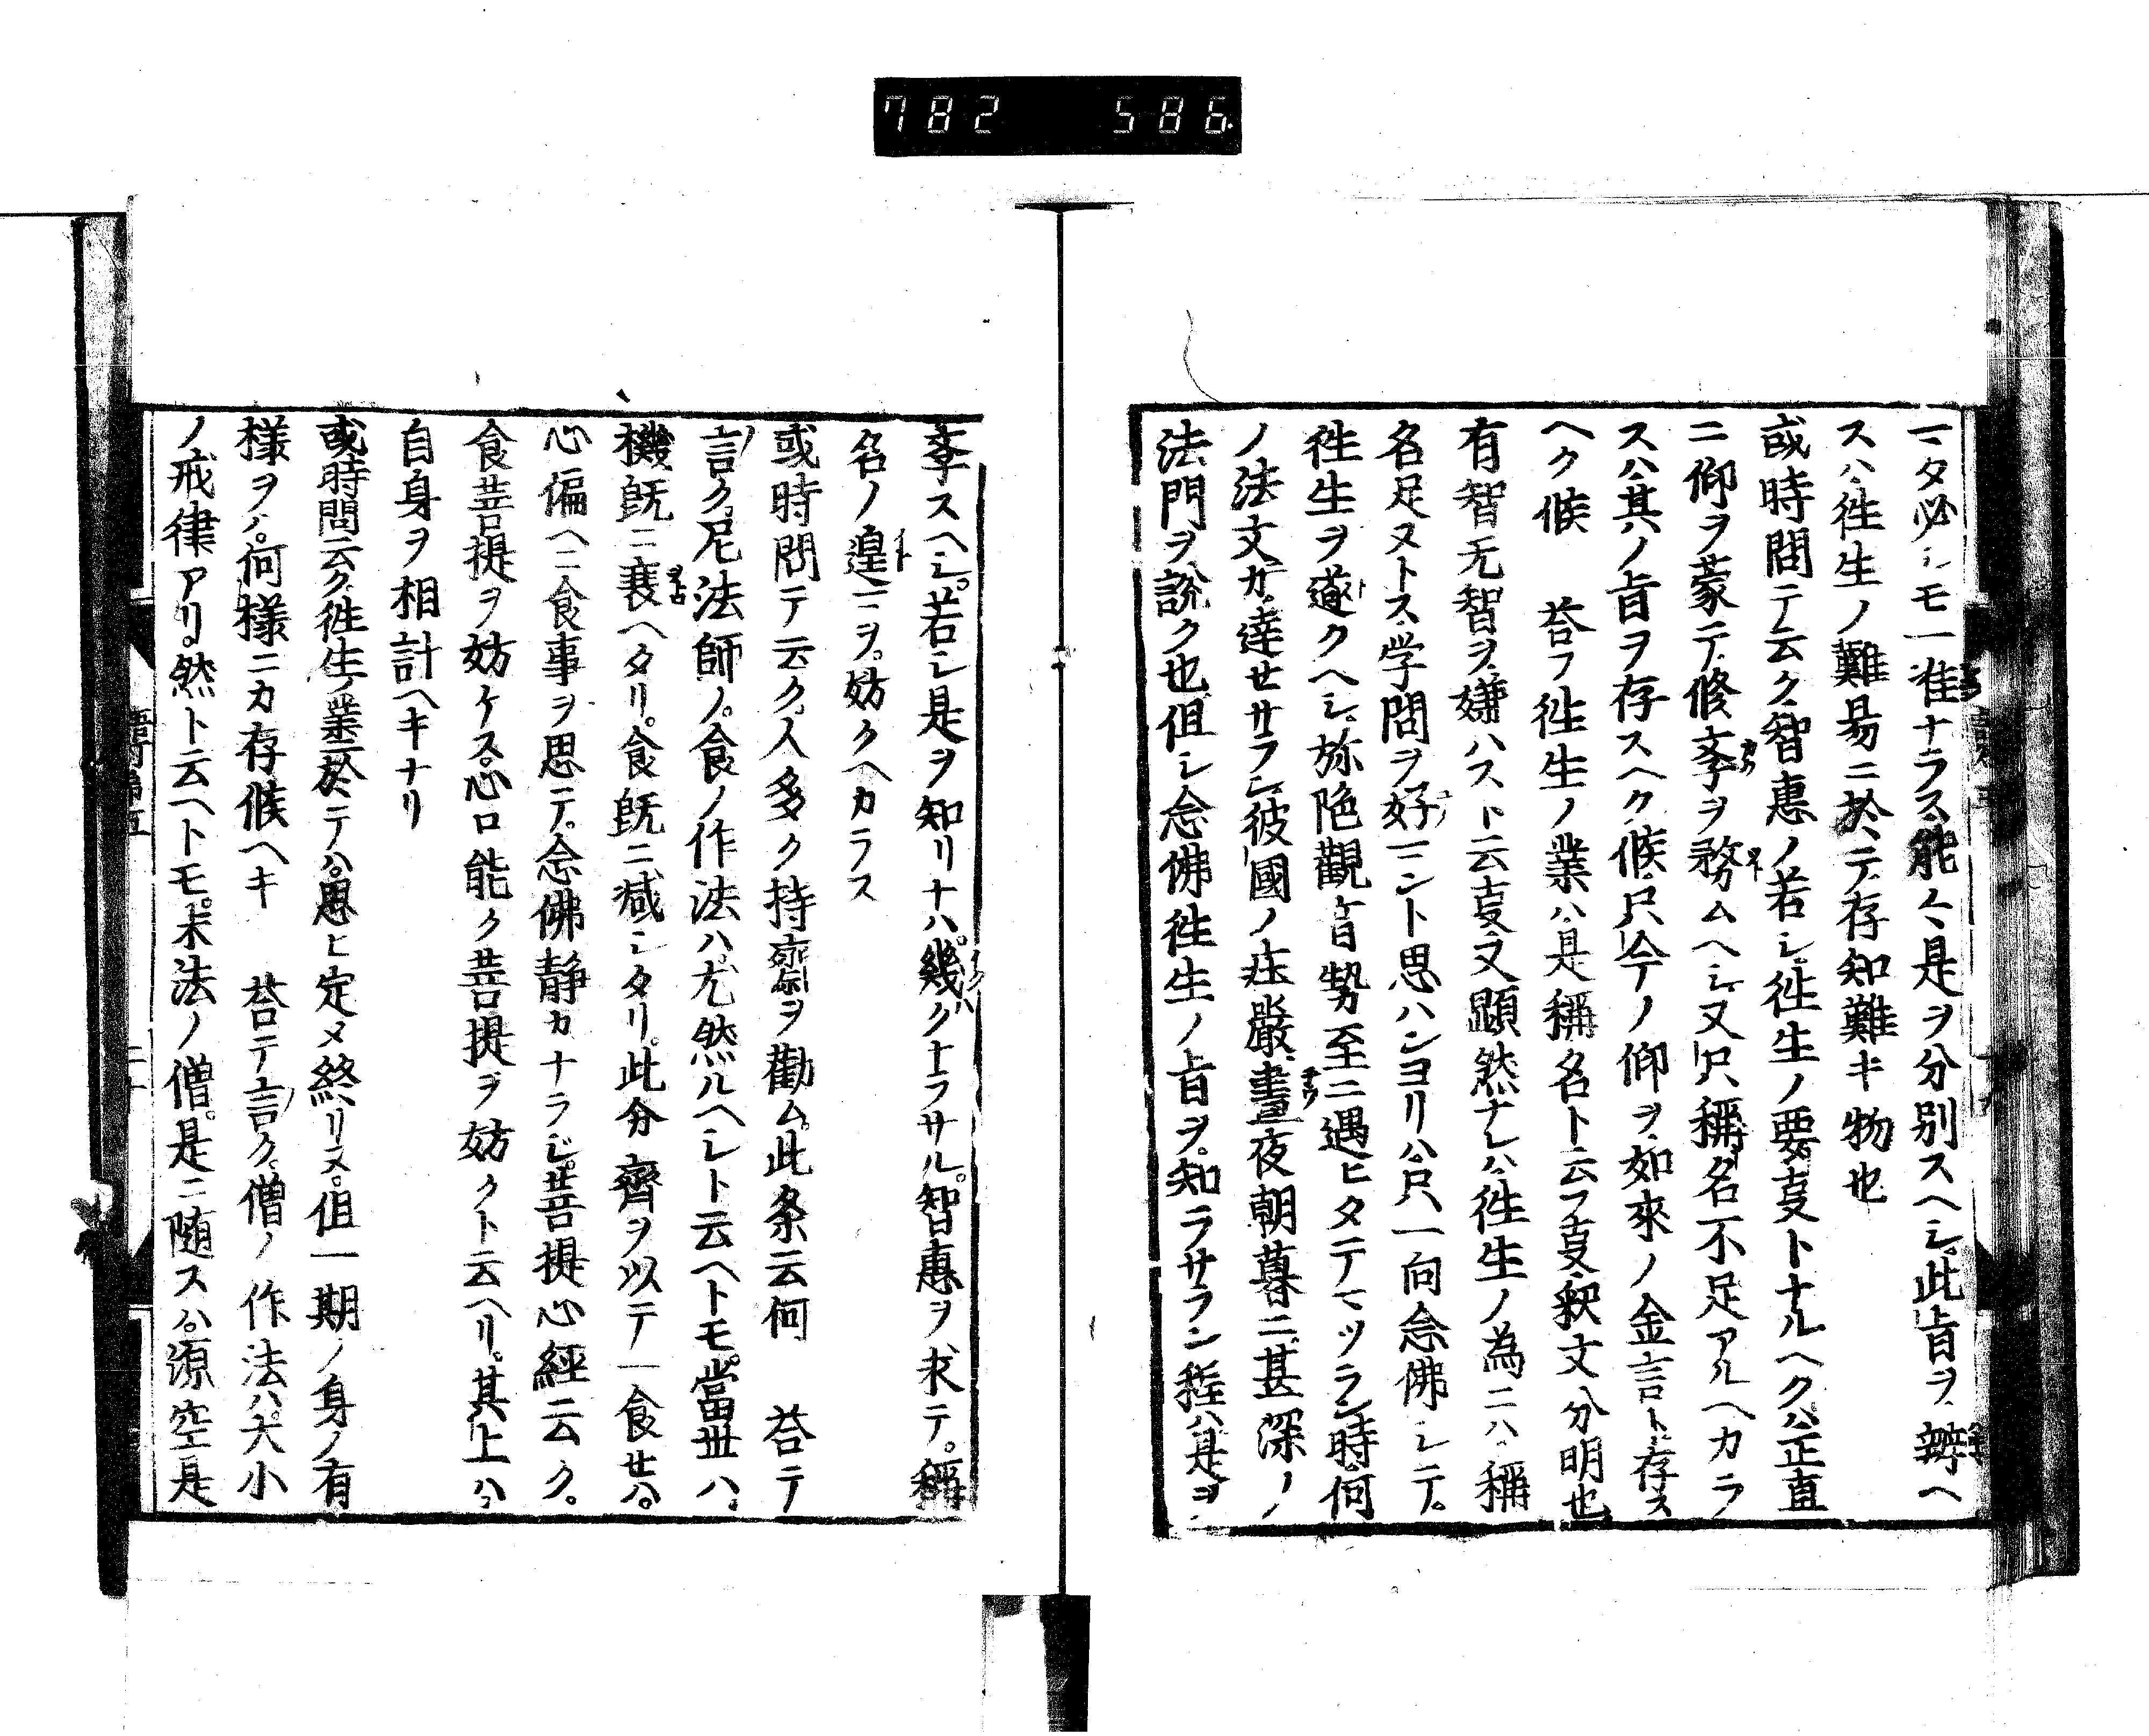 782 586
マタ必シモ一准ナラス能々是ヲ分別スヘシ此旨ヲ辨ヘ
スハ徃生ノ難易ニ於テ存知難キ物也
或時問テ云ク智惠ノ若シ徃生ノ要㕝トナルヘクハ正直
ニ仰ヲ蒙テ修斈ヲ務ムヘシ又只稱名不足アルヘカラ
スハ其ノ旨ヲ存スヘク候只今ノ仰ヲ如來ノ金言ト存ス
ヘク候　荅フ徃生ノ業ハ是稱名ト云フ㕝釈文分明也
有智无智ヲ嫌ハスト云㕝又顕然ナレハ徃生ノ為ニハ稱
名足ヌトス学問ヲ好マント思ハンヨリハ只一向念佛シテ
徃生ヲ遂クヘシ弥陁觀音勢至ニ遇ヒタテマツラン時何
ノ法文カ達セサラン彼國ノ庄嚴晝夜朝暮ニ甚深ノ
法門ヲ説ク也但シ念佛徃生ノ旨ヲ知ラサラン程ハ是ヲ
斈スヘシ若シ是ヲ知リナハ幾クナラサル智惠ヲ求テ稱
名ノ遑マヲ妨クヘカラス
或時問テ云ク人多ク持齋ヲ勸ム此条云何　荅テ
言ク尼法師ノ食ノ作法ハ尤然ルヘシト云ヘトモ當丗ハ
機既ニ衰ヘタリ食既ニ减シタリ此分齊ヲ以テ一食セハ
心偏ヘニ食事ヲ思テ念佛静カナラシ菩提心經云ク
食菩提ヲ妨ケス心ロ能ク菩提ヲ妨クト云ヘリ其上ハ
自身ヲ相計ヘキナリ
或時問云ク徃生ノ業ニ於テハ思ヒ定メ終リヌ但一期ノ身ノ有
様ヲハ何様ニカ存候ヘキ　荅テ言ク僧ノ作法ハ大小
ノ戒律アリ然ト云ヘトモ末法ノ僧是ニ随スハ源空是